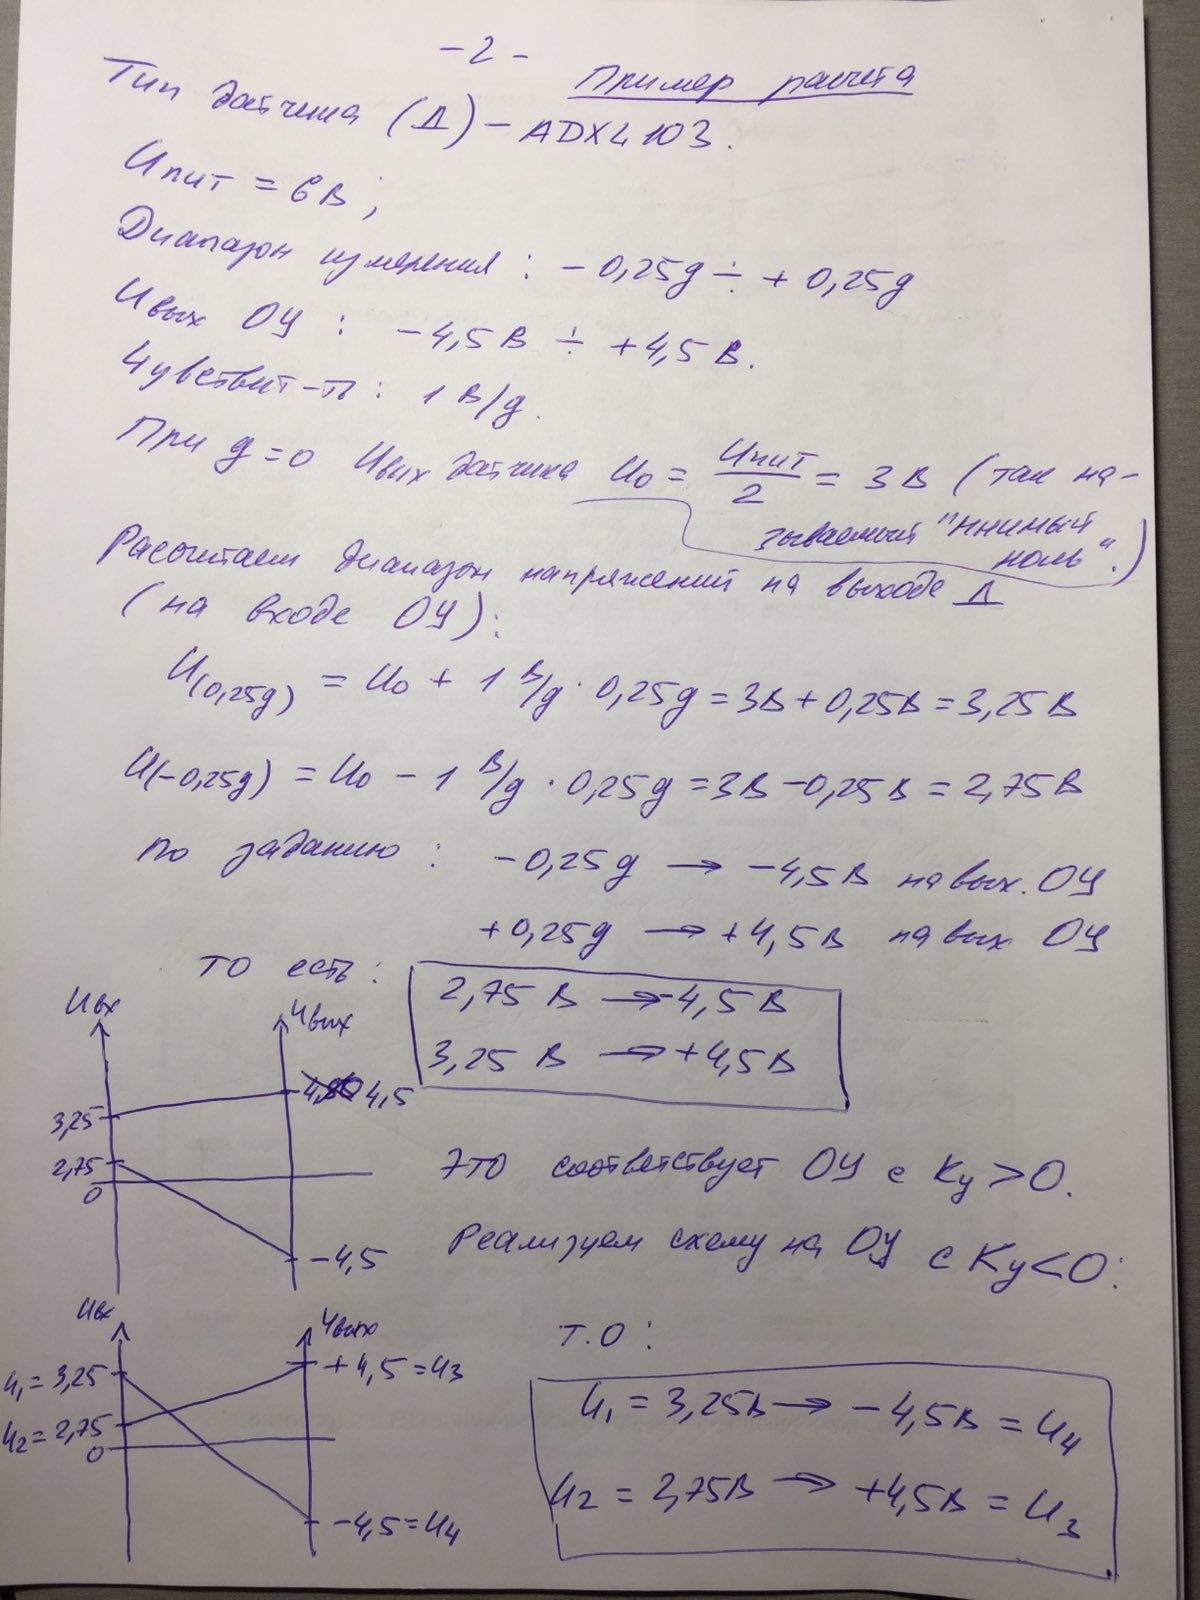 - 2 -
Пример расчета
Тип датчика (Д) - ADXL103.
Uпит = 6В;
Диапазон измерения: - 0,25g ÷ + 0,25g
Uвых ОУ: -4,5В ÷ +4,5В.
Чувствит-ть: 1 В/g.
При g=0 Uвых датчика U0 = Uпит/2 = 3В (так на-
зываемый "мнимый
ноль".)
Расчитаем диапазон напряжений на выходе Д
(на входе ОУ):
U(0,25g) = U0 + 1 В/g · 0,25g = 3В + 0,25В = 3,25В
U(-0,25g) = U0 - 1 В/g · 0,25g = 3В - 0,25В = 2,75В
по заданию: -0,25g → -4,5В на вых. ОУ
+0,25g → +4,5В на вых ОУ
то есть:
2,75 В → -4,5В
3,25 В → +4,5В
Uвх Uвых
4,5
3,25
2,75
0
-4,5
Это соответствует ОУ с Kу > 0.
Реализуем схему на ОУ с Kу < 0:
Uвх Uвых
U1 = 3,25 +4,5 = U3
U2 = 2,75
0
-4,5 = U4
Т.О:
U1 = 3,25В → -4,5В = U4
U2 = 2,75В → +4,5В = U3